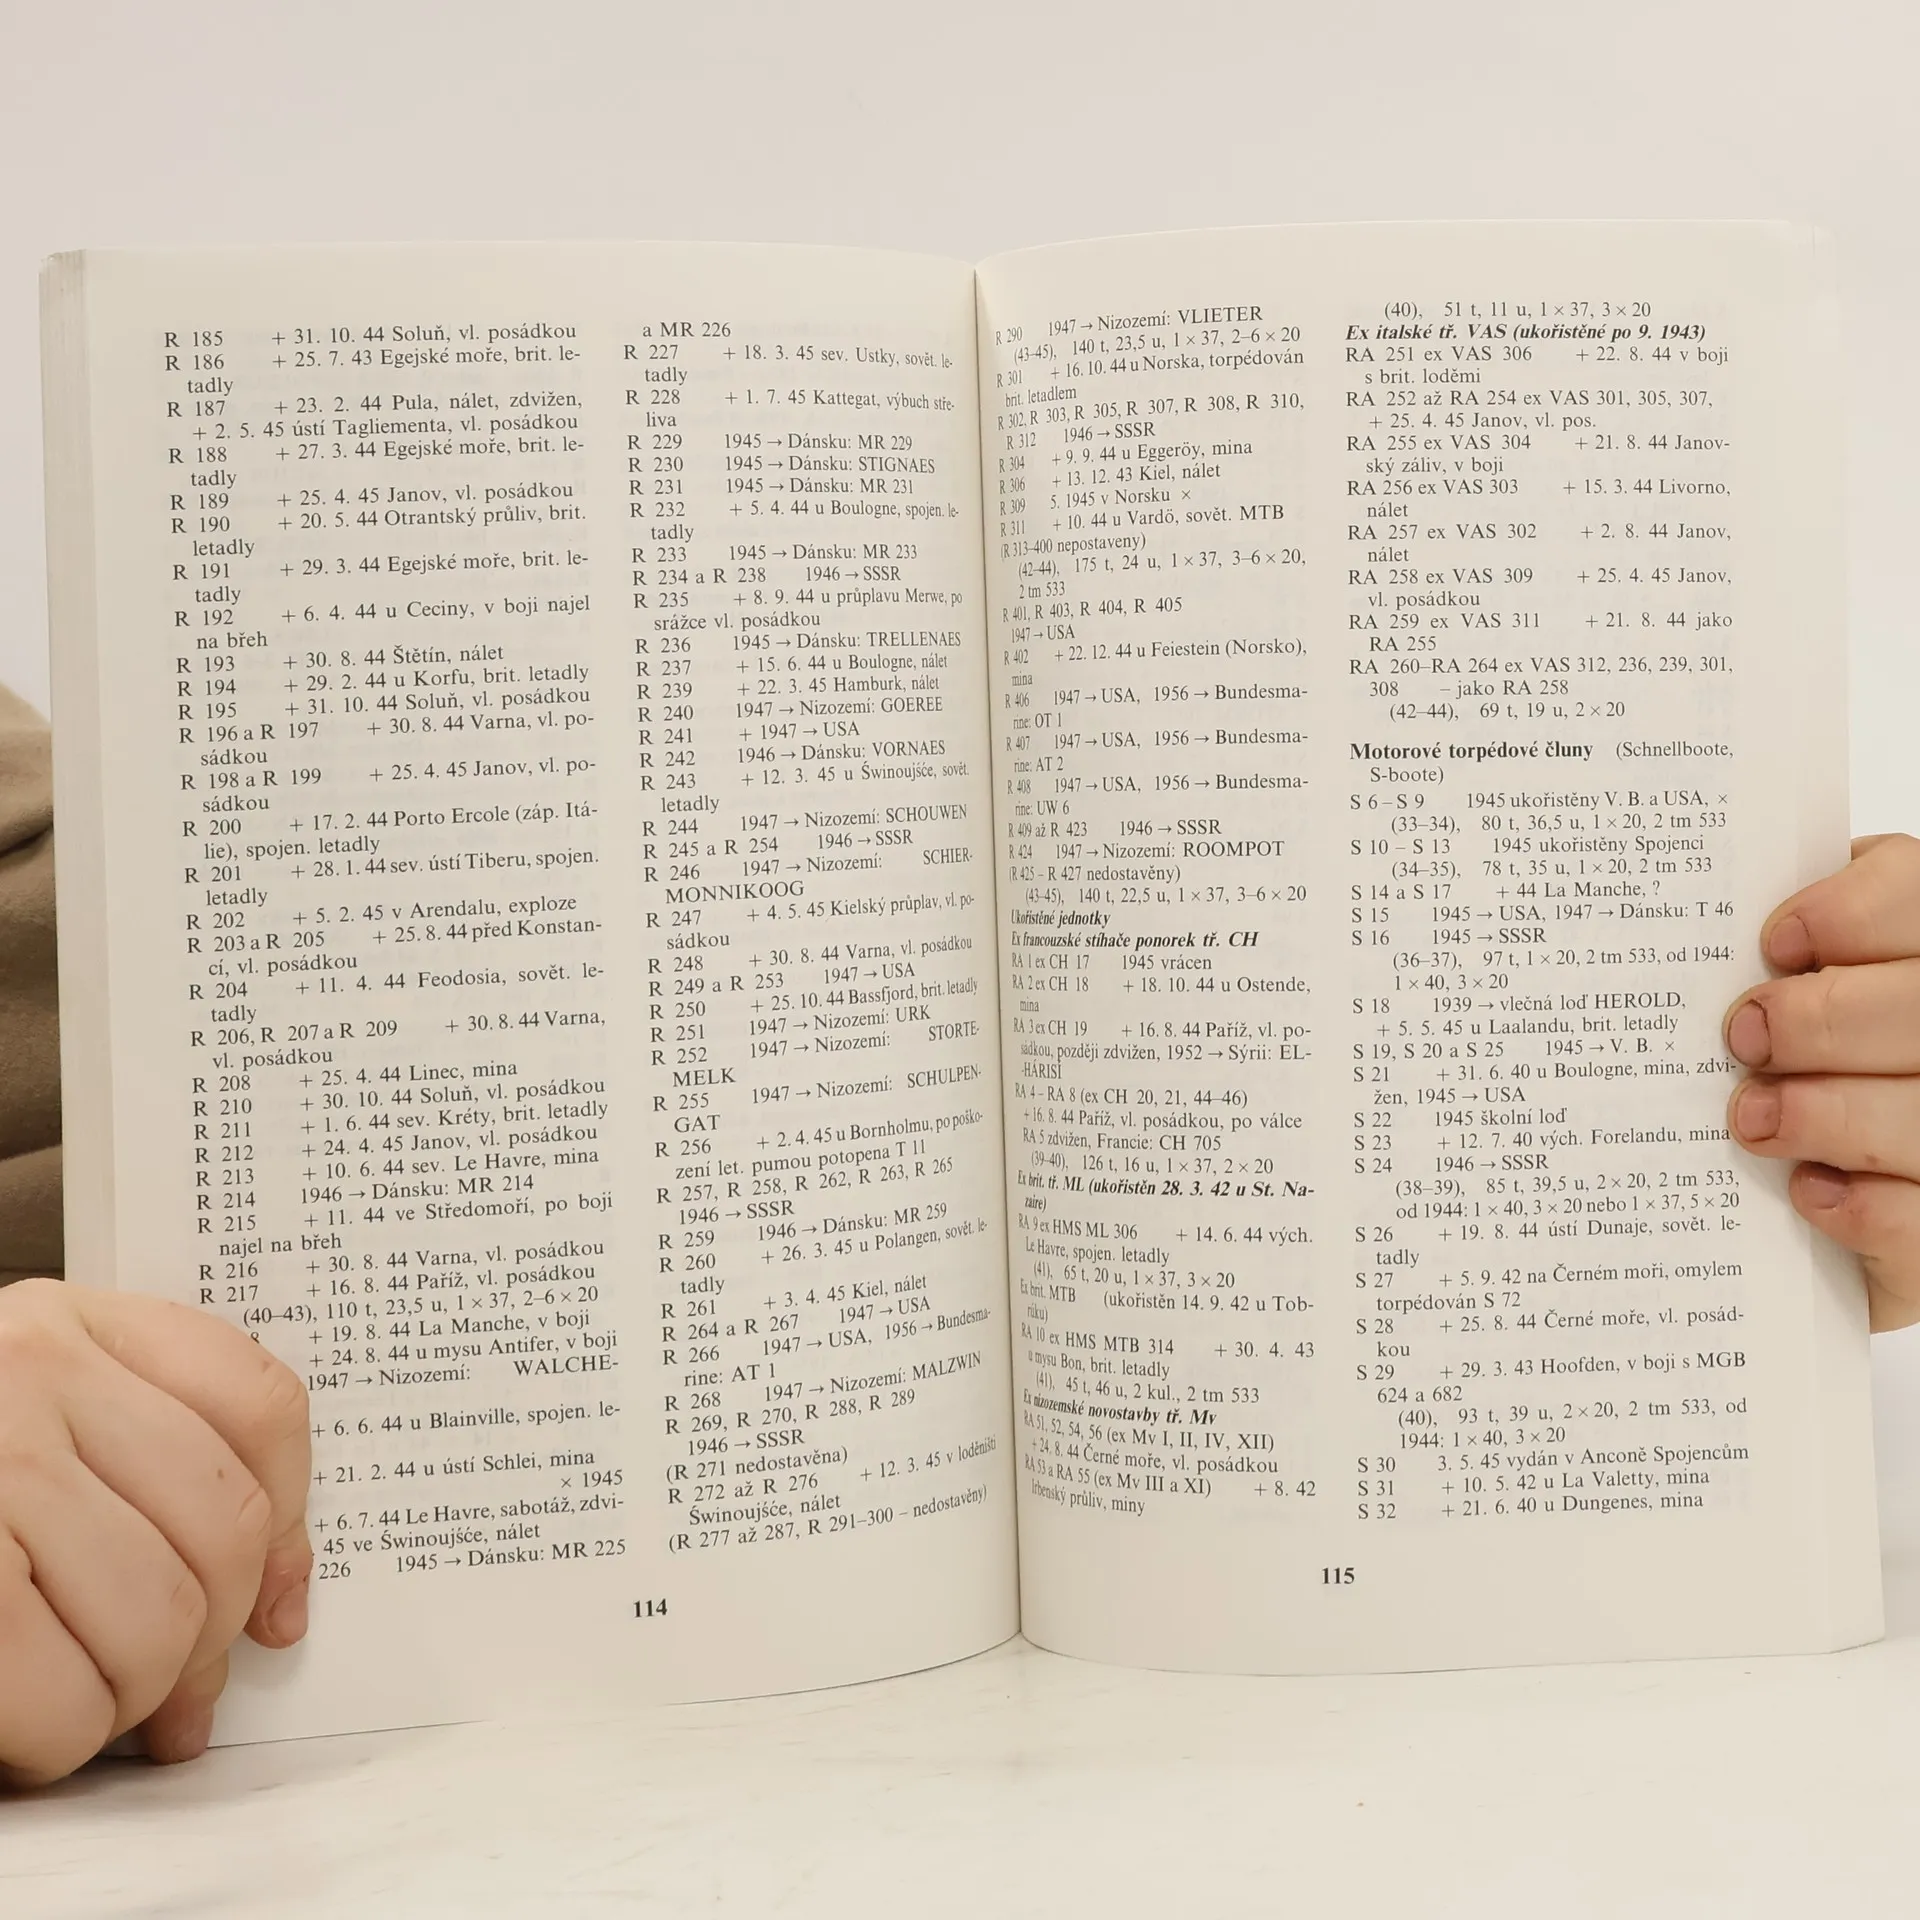 R 185 + 31. 10. 44 Soluň, vl. posádkou
R 186 + 25. 7. 43 Egejské moře, brit. le-
tadly
R 187 + 23. 2. 44 Pula, nálet, zdvižen,
+ 2. 5. 45 ústí Tagliementa, vl. posádkou
R 188 + 27. 3. 44 Egejské moře, brit. le-
tadly
R 189 + 25. 4. 45 Janov, vl. posádkou
R 190 + 20. 5. 44 Otrantský průliv, brit.
letadly
R 191 + 29. 3. 44 Egejské moře, brit. le-
tadly
R 192 + 6. 4. 44 u Ceciny, v boji najel
na břeh
R 193 + 30. 8. 44 Štětín, nálet
R 194 + 29. 2. 44 u Korfu, brit. letadly
R 195 + 31. 10. 44 Soluň, vl. posádkou
R 196 a R 197 + 30. 8. 44 Varna, vl. po-
sádkou
R 198 a R 199 + 25. 4. 45 Janov, vl. po-
sádkou
R 200 + 17. 2. 44 Porto Ercole (záp. Itá-
lie), spojen. letadly
R 201 + 28. 1. 44 sev. ústí Tiberu, spojen.
letadly
R 202 + 5. 2. 45 v Arendalu, exploze
R 203 a R 205 + 25. 8. 44 před Konstan-
cí, vl. posádkou
R 204 + 11. 4. 44 Feodosia, sovět. le-
tadly
R 206, R 207 a R 209 + 30. 8. 44 Varna,
vl. posádkou
R 208 + 25. 4. 44 Linec, mina
R 210 + 30. 10. 44 Soluň, vl. posádkou
R 211 + 1. 6. 44 sev. Kréty, brit. letadly
R 212 + 24. 4. 45 Janov, vl. posádkou
R 213 + 10. 6. 44 sev. Le Havre, mina
R 214 1946 → Dánsku: MR 214
R 215 + 11. 44 ve Středomoří, po boji
najel na břeh
R 216 + 30. 8. 44 Varna, vl. posádkou
R 217 + 16. 8. 44 Paříž, vl. posádkou
(40–43), 110 t, 23,5 u, 1 × 37, 2–6 × 20
8 + 19. 8. 44 La Manche, v boji
+ 24. 8. 44 u mysu Antifer, v boji
1947 → Nizozemí: WALCHE-
+ 6. 6. 44 u Blainville, spojen. le-
+ 21. 2. 44 u ústí Schlei, mina
× 1945
+ 6. 7. 44 Le Havre, sabotáž, zdvi-
45 ve Świnoujśće, nálet
226 1945 → Dánsku: MR 225
114
a MR 226
R 227 + 18. 3. 45 sev. Ustky, sovět. le-
tadly
R 228 + 1. 7. 45 Kattegat, výbuch stře-
liva
R 229 1945 → Dánsku: MR 229
R 230 1945 → Dánsku: STIGNAES
R 231 1945 → Dánsku: MR 231
R 232 + 5. 4. 44 u Boulogne, spojen. le-
tadly
R 233 1945 → Dánsku: MR 233
R 234 a R 238 1946 → SSSR
R 235 + 8. 9. 44 u průplavu Merwe, po
srážce vl. posádkou
R 236 1945 → Dánsku: TRELLENAES
R 237 + 15. 6. 44 u Boulogne, nálet
R 239 + 22. 3. 45 Hamburk, nálet
R 240 1947 → Nizozemí: GOEREE
R 241 + 1947 → USA
R 242 1946 → Dánsku: VORNAES
R 243 + 12. 3. 45 u Świnoujśće, sovět.
letadly
R 244 1947 → Nizozemí: SCHOUWEN
R 245 a R 254 1946 → SSSR
R 246 1947 → Nizozemí: SCHIER-
MONNIKOOG
R 247 + 4. 5. 45 Kielský průplav, vl. po-
sádkou
R 248 + 30. 8. 44 Varna, vl. posádkou
R 249 a R 253 1947 → USA
R 250 + 25. 10. 44 Bassfjord, brit. letadly
R 251 1947 → Nizozemí: URK
R 252 1947 → Nizozemí: STORTE-
MELK
R 255 1947 → Nizozemí: SCHULPEN-
GAT
R 256 + 2. 4. 45 u Bornholmu, po poško-
zení let. pumou potopena T 11
R 257, R 258, R 262, R 263, R 265
1946 → SSSR
R 259 1946 → Dánsku: MR 259
R 260 + 26. 3. 45 u Polangen, sovět. le-
tadly
R 261 + 3. 4. 45 Kiel, nálet
R 264 a R 267 1947 → USA
R 266 1947 → USA, 1956 → Bundesma-
rine: AT 1
R 268 1947 → Nizozemí: MALZWIN
R 269, R 270, R 288, R 289
1946 → SSSR
(R 271 nedostavěna)
R 272 až R 276 + 12. 3. 45 v loděništi
Świnoujśće, nálet
(R 277 až 287, R 291–300 – nedostavěny)
R 290 1947 → Nizozemí: VLIETER
(43–45), 140 t, 23,5 u, 1 × 37, 2–6 × 20
R 301 + 16. 10. 44 u Norska, torpédován
brit. letadlem
R 302, R 303, R 305, R 307, R 308, R 310,
R 312 1946 → SSSR
R 304 + 9. 9. 44 u Eggeröy, mina
R 306 + 13. 12. 43 Kiel, nálet
R 309 5. 1945 v Norsku ×
R 311 + 10. 44 u Vardö, sovět. MTB
(R 313–400 nepostaveny)
(42–44), 175 t, 24 u, 1 × 37, 3–6 × 20,
2 tm 533
R 401, R 403, R 404, R 405
1947 → USA
R 402 + 22. 12. 44 u Feiestein (Norsko),
mina
R 406 1947 → USA, 1956 → Bundesma-
rine: OT 1
R 407 1947 → USA, 1956 → Bundesma-
rine: AT 2
R 408 1947 → USA, 1956 → Bundesma-
rine: UW 6
R 409 až R 423 1946 → SSSR
R 424 1947 → Nizozemí: ROOMPOT
(R 425 – R 427 nedostavěny)
(43–45), 140 t, 22,5 u, 1 × 37, 3–6 × 20
Ukořistěné jednotky
Ex francouzské stíhače ponorek tř. CH
RA 1 ex CH 17 1945 vrácen
RA 2 ex CH 18 + 18. 10. 44 u Ostende,
mina
RA 3 ex CH 19 + 16. 8. 44 Paříž, vl. po-
sádkou, později zdvižen, 1952 → Sýrii: EL-
-HÁRISÍ
RA 4 – RA 8 (ex CH 20, 21, 44–46)
+ 16. 8. 44 Paříž, vl. posádkou, po válce
RA 5 zdvižen, Francie: CH 705
(39–40), 126 t, 16 u, 1 × 37, 2 × 20
Ex brit. tř. ML (ukořistěn 28. 3. 42 u St. Na-
zaire)
RA 9 ex HMS ML 306 + 14. 6. 44 vých.
Le Havre, spojen. letadly
(41), 65 t, 20 u, 1 × 37, 3 × 20
Ex brit. MTB (ukořistěn 14. 9. 42 u Tob-
ruku)
RA 10 ex HMS MTB 314 + 30. 4. 43
u mysu Bon, brit. letadly
(41), 45 t, 46 u, 2 kul., 2 tm 533
Ex nizozemské novostavby tř. Mv
RA 51, 52, 54, 56 (ex Mv I, II, IV, XII)
+ 24. 8. 44 Černé moře, vl. posádkou
RA 53 a RA 55 (ex Mv III a XI) + 8. 42
Irbenský průliv, miny
(40), 51 t, 11 u, 1 × 37, 3 × 20
Ex italské tř. VAS (ukořistěné po 9. 1943)
RA 251 ex VAS 306 + 22. 8. 44 v boji
s brit. loděmi
RA 252 až RA 254 ex VAS 301, 305, 307,
+ 25. 4. 45 Janov, vl. pos.
RA 255 ex VAS 304 + 21. 8. 44 Janov-
ský záliv, v boji
RA 256 ex VAS 303 + 15. 3. 44 Livorno,
nálet
RA 257 ex VAS 302 + 2. 8. 44 Janov,
nálet
RA 258 ex VAS 309 + 25. 4. 45 Janov,
vl. posádkou
RA 259 ex VAS 311 + 21. 8. 44 jako
RA 255
RA 260–RA 264 ex VAS 312, 236, 239, 301,
308 – jako RA 258
(42–44), 69 t, 19 u, 2 × 20
Motorové torpédové čluny (Schnellboote,
S-boote)
S 6 – S 9 1945 ukořistěny V. B. a USA, ×
(33–34), 80 t, 36,5 u, 1 × 20, 2 tm 533
S 10 – S 13 1945 ukořistěny Spojenci
(34–35), 78 t, 35 u, 1 × 20, 2 tm 533
S 14 a S 17 + 44 La Manche, ?
S 15 1945 → USA, 1947 → Dánsku: T 46
S 16 1945 → SSSR
(36–37), 97 t, 1 × 20, 2 tm 533, od 1944:
1 × 40, 3 × 20
S 18 1939 → vlečná loď HEROLD,
+ 5. 5. 45 u Laalandu, brit. letadly
S 19, S 20 a S 25 1945 → V. B. ×
S 21 + 31. 6. 40 u Boulogne, mina, zdvi-
žen, 1945 → USA
S 22 1945 školní loď
S 23 + 12. 7. 40 vých. Forelandu, mina
S 24 1946 → SSSR
(38–39), 85 t, 39,5 u, 2 × 20, 2 tm 533,
od 1944: 1 × 40, 3 × 20 nebo 1 × 37, 5 × 20
S 26 + 19. 8. 44 ústí Dunaje, sovět. le-
tadly
S 27 + 5. 9. 42 na Černém moři, omylem
torpédován S 72
S 28 + 25. 8. 44 Černé moře, vl. posád-
kou
S 29 + 29. 3. 43 Hoofden, v boji s MGB
624 a 682
(40), 93 t, 39 u, 2 × 20, 2 tm 533, od
1944: 1 × 40, 3 × 20
S 30 3. 5. 45 vydán v Anconě Spojencům
S 31 + 10. 5. 42 u La Valetty, mina
S 32 + 21. 6. 40 u Dungenes, mina
115